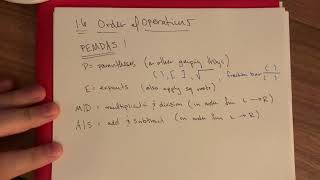 1.6 Order of Operations
PEMDAS
P = parentheses (or other grouping
( ), [ ], √ , fraction bar ( )/( )
E = exponents (also apply sq roots)
M/D = multiplication & division (in order from L → R)
A/S = add & subtract (in order from L → R)